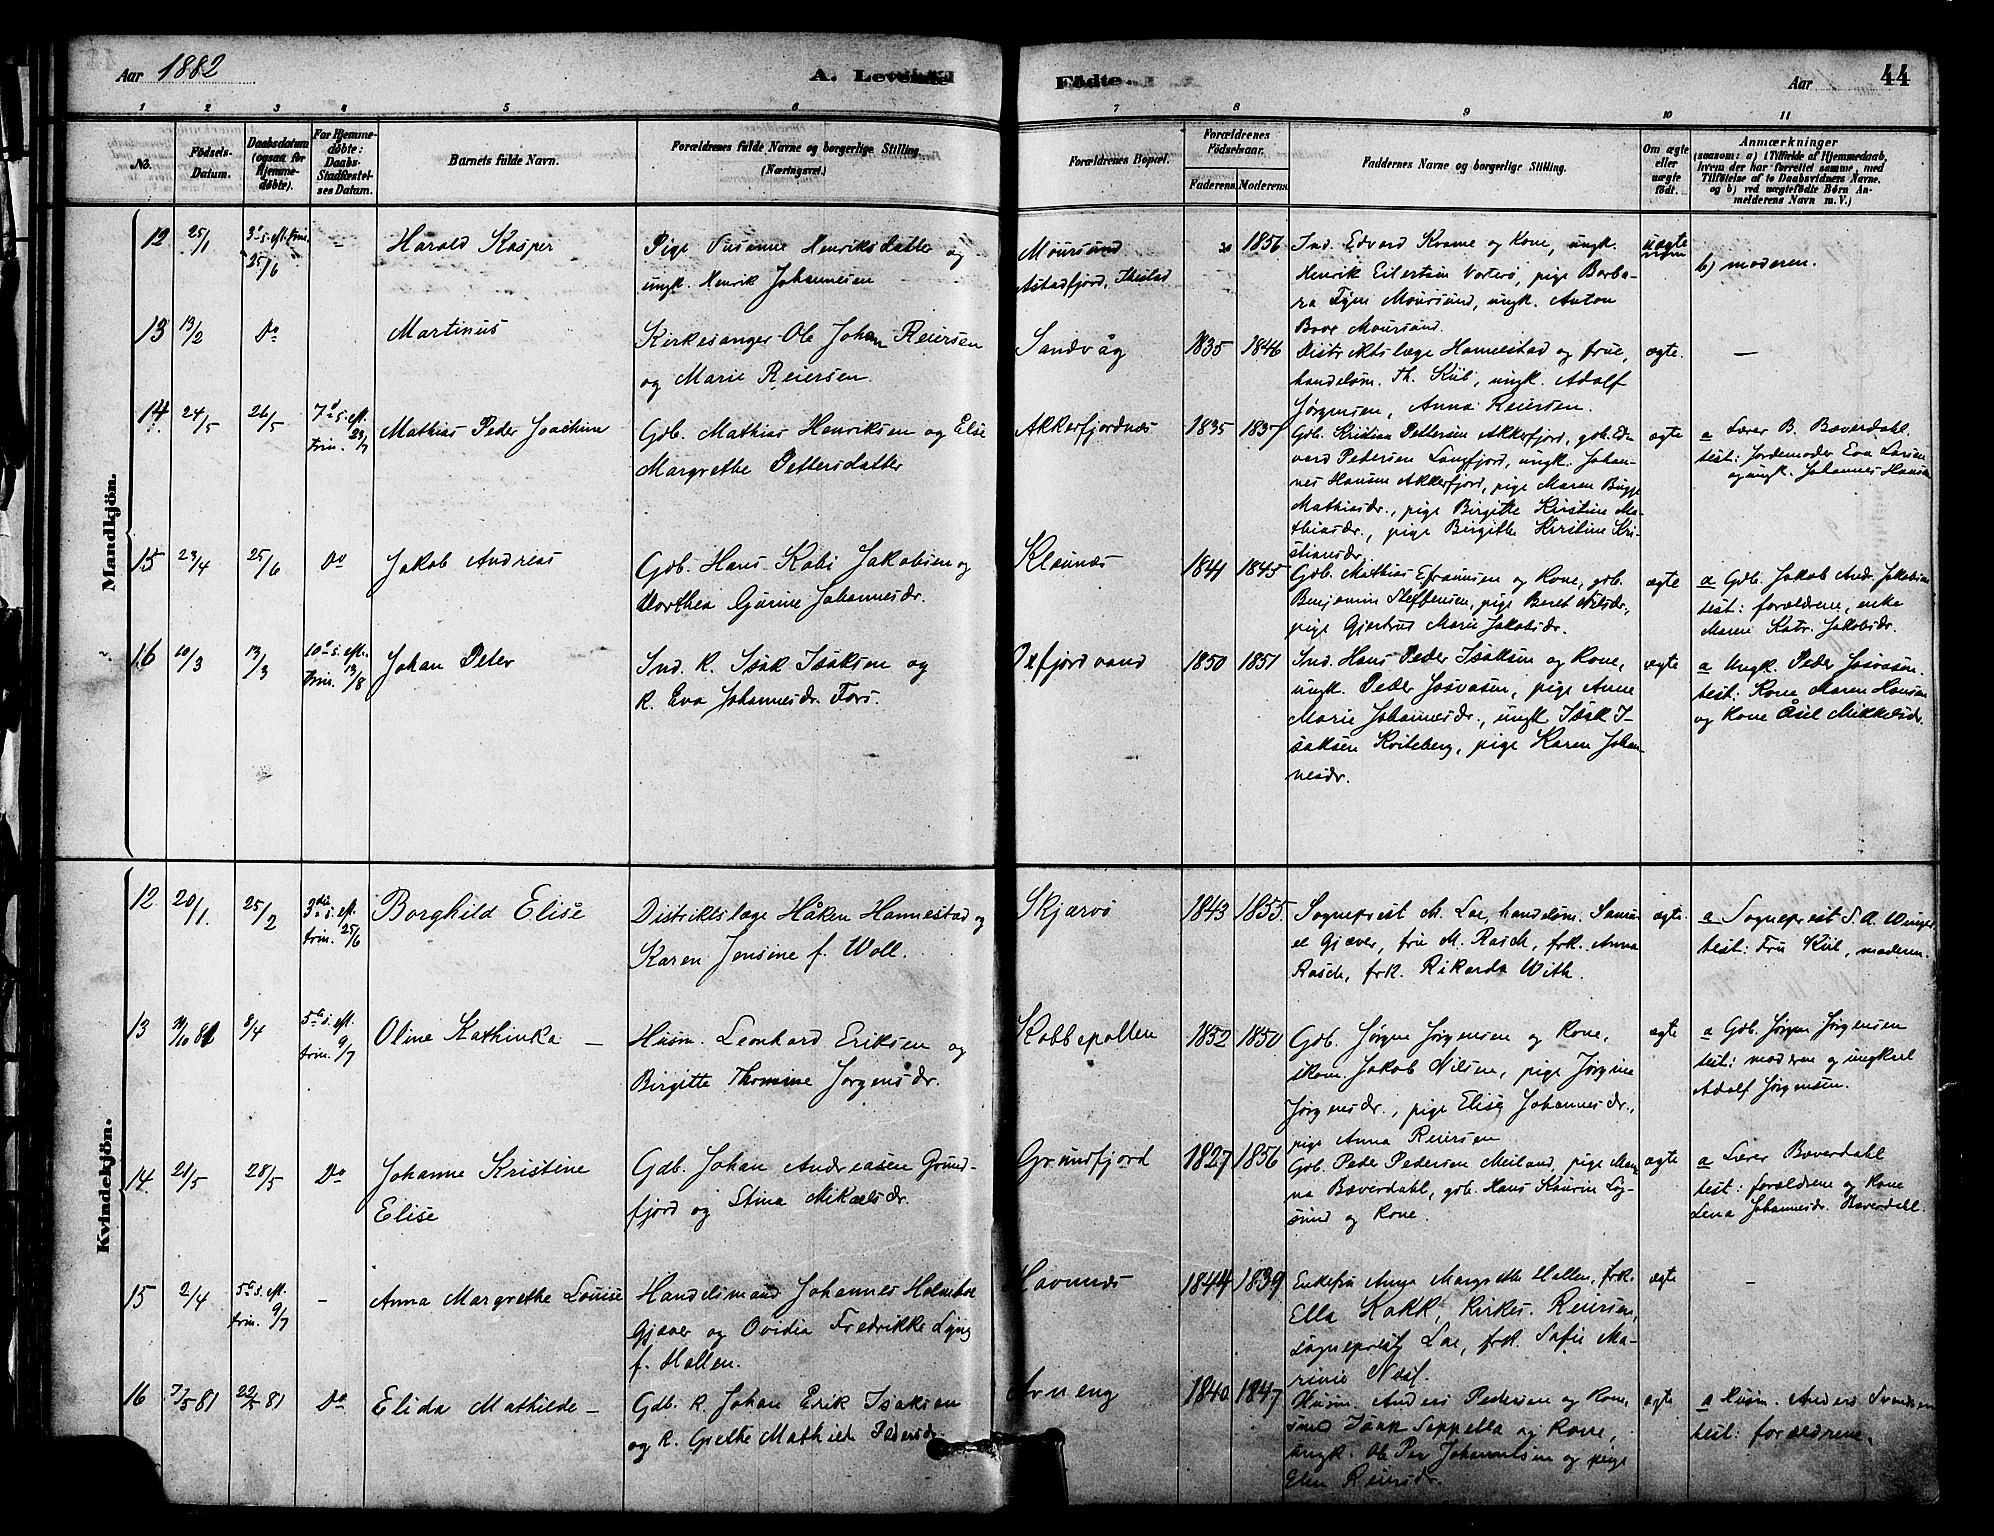 Aar 1882
A. Levende
Födte.
Aar
44
1 2 3 4 5 6 7 8 9 10 11
No.
Fødsels-
Datum.
Daabsdatum
(ogsaa for
Hjemme-
døbte).
For Hjemme-
døbte:
Daabs-
Stadfæstel-
ses Datum.
Barnets fulde Navn.
Forældrenes fulde Navne og borgerlige Stilling.
(Næringsvei.)
Forældrenes Bopæl.
Forældrenes
Fødselsaar.
Faderens. Moderens.
Faddernes Navne og borgerlige Stilling.
Om ægte
eller
uægte
født.
Anmærkninger
(saasom: a) i Tilfælde af Hjemmedaab,
hvem der har forrettet samme, med
Tilføielse af to Daabsvidners Navne,
og b) ved uægtefødte Børn An-
melderens Navn m. V.)
Mandkjön.
12 25/1 25/6 - Harald Kasper
Pige Susanne Henriksdatter og
ungk. Henrik Johannesen
Moursund
1856
Ind. Edvard Kvame og Kone, ungk.
Henrik Eilertsen Vorterø, pige Barba-
ra Moursund, ungk. Anton
Moursund.
uægte
b) moderen.
13 13/2 Do Martinus
Kirkesanger Ole Johan Reiersen
og Marie Reiersen.
Sandvåg
1835 1846
Distriktslæge Hannestad og frue,
handelsm. Th. Kiil, ungk. Adolf
Jørgensen, Anna Reiersen.
ægte. —
14 24/5 26/5 7d s. eft. trin. 23/7 Mathias Peder Joachim
Gdb. Mathias Henriksen og Else
Margrethe Pettersdatter
Akkerfjordnæs
1835 1837
Gdb. Kristian Pettersen Akkerfjord, gdb. Ed-
vard Pedersen Langfjord, ungk. Johan-
nes Hansen Akkerfjord, pige Maren Bugge
Mathiasdr., pige Birgitte Kirstine Ma-
thiasdr., pige Birgitte Kirstine Kri-
stiansdr.
ægte
a Lærer B. Bæverdahl.
test: Jordemoder Eva Larsen
og ungk. Johannes Hansen
15 23/4 25/6 Do Jakob Andreas
Gdb. Hans Kabi Jakobsen og
Dorthea Gjurine Johannesdr.
Klaunæs
1841 1845
Gdb. Mathias Efraimsen og Kone, gdb.
Benjamin Steffensen, pige Beret Nilsdr.,
pige Gjertrud Marie Jakobsdr.
ægte
a Gdb. Jakob Andr. Jakobsen
test: forældrene, enke
Maren Katr. Jakobsdr.
16 10/3 13/3 10d s. eft. trin. 13/8 Johan Peter
Ind. K. Isak Isaksen og
K. Eva Johannesdr. Fors.
Oxfjordvand
1850 1851
Ind. Hans Peder Isaksen og Kone,
ungk. Peder Josvasen, pige Anne
Marie Johannesdr., ungk Isak I-
saksen Kviteberg, pige Karen Johan-
nesdr.
ægte
a Ungk. Peder Josvasen.
test: Kone Maren Hansen
og Kone Åsel Mikkelsdr.
Kvindekjön.
12 20/1. 25/2 3die s. eft. trin. 25/6 Borghild Elise
Distriktslæge Håken Hannestad og
Karen Jensine f. Woll.
Skjærvø
1843 1855
Sogneprest M. Loe, handelsm. Samu-
el Gjæver, fru M. Rasch, frk. Anna
Rasch, frk. Rikarda With.
ægte.
a Sogneprest S. A. Wings
test: Fru Kiil, moderen.
13 8/4 5te s. eft. trin. 9/7 Oline Kathinka —
Husm. Leonhard Eriksen og
Birgitte Thomine Jørgensdr.
Kobbepollen
1852 1850
Gdb. Jørgen Jørgensen og Kone,
skom. Jakob Nilsen, pige Jørgine
Jørgensdr., pige Elise Johannesdr.,
pige Anna Reiersen
ægte
a Gdb. Jørgen Jørgensen
test: moderen og ungkarl
Adolf Jørgensen.
14. 21/5 28/5 Do Johanne Kristine
Elise
Gdb. Johan Andreasen Grund-
fjord og Stina Mikaelsdr.
Grundfjord
1827 1856
Gdb. Peder Pedersen Meiland, pige Man-
na Bæverdahl, gdb. Hans Kaurin Log-
sund og Kone.
ægte
a Lærer Bæverdahl
test: forældrene og Kone
Lena Johannesdr. Bæverdahl.
15 2/4 5te s. eft. trin. 9/7 - Anna Margrethe Louise
Handelsmand Johannes Holmboe
Gjæver og Ovidia Fredrikke Lyng
f. Hallen.
Havnnæs
1844 1839
Enkefru Anna Margrethe Hallen, frk.
Ella Kokk, Kirkes. Reiersen,
sogneprest Loe, frk. Sofie Ma-
rinie
ægte —
16 7/5 81 22/5 81 Do Elida Mathilde —
Gdb. K. Johan Erik Isaksen
og K. Grethe Mathilde Pedersdr.
Arneng
1840 1847
Husm. Anders Pedersen og Kone,
Isak Seppella og Kone,
ungk. Ole Per Johannesen og pige
Elen Reiersdr.
ægte
a Husm. Anders Svendsen
test: forældrene.